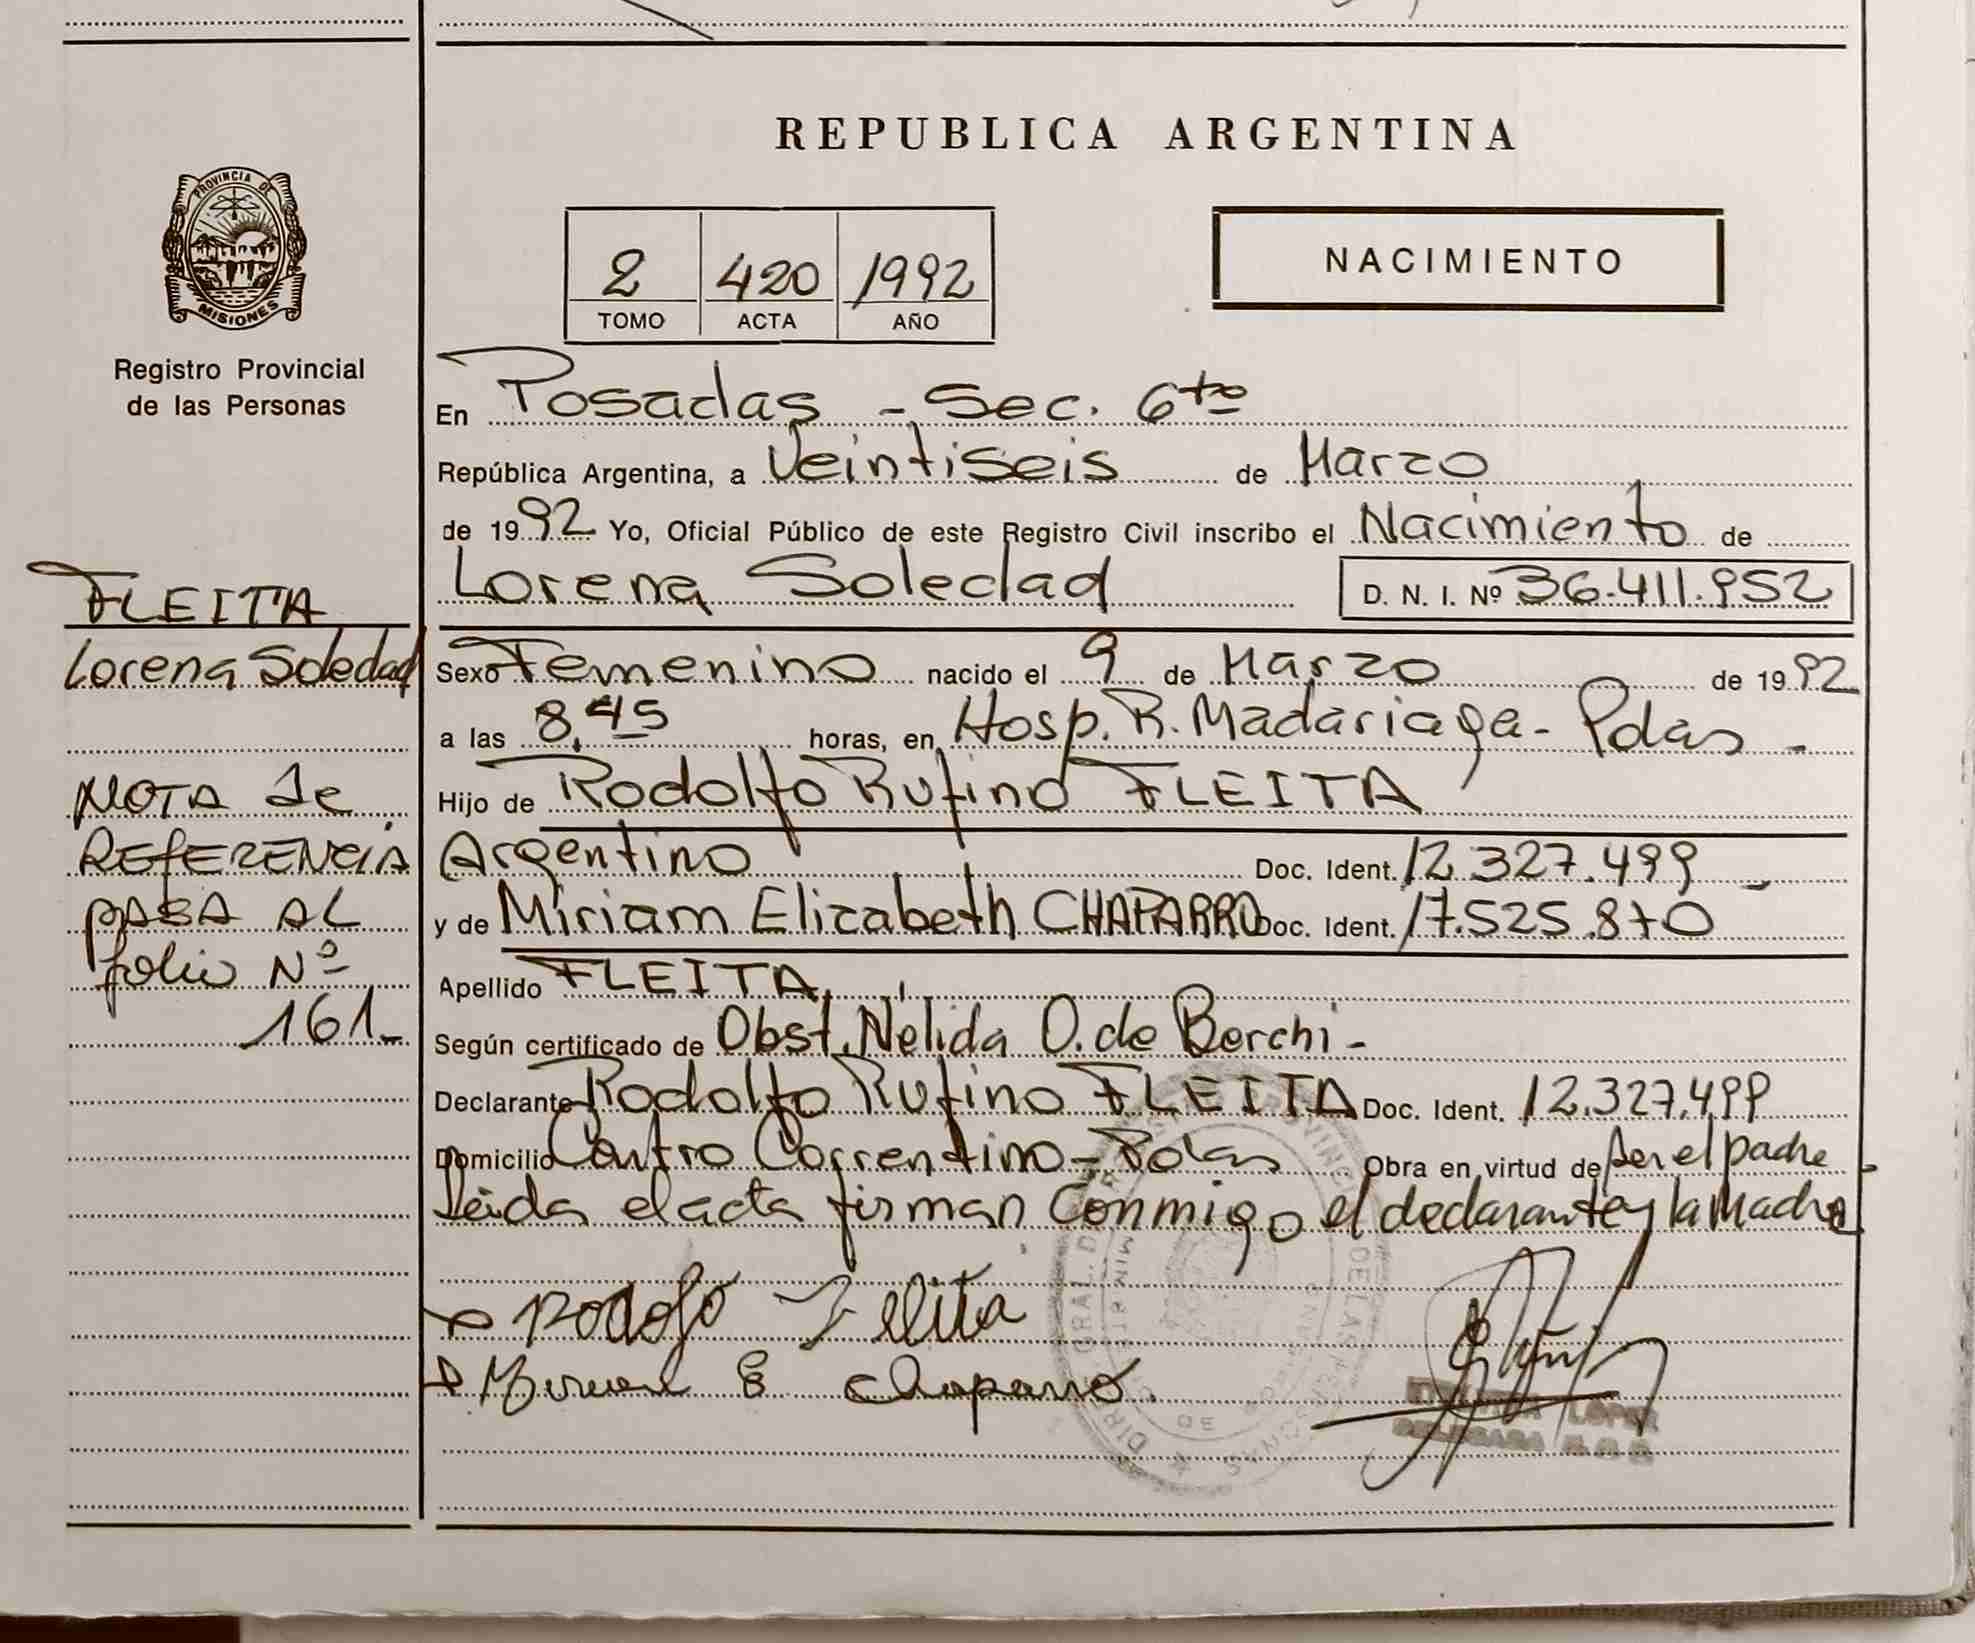 REPUBLICA ARGENTINA
PROVINCIA DE
MISIONES
Registro Provincial
de las Personas
2 420 1992
TOMO ACTA AÑO
NACIMIENTO
En Posadas - Sec. 6ta
República Argentina, a Veintiseis de Marzo
de 1992 Yo, Oficial Público de este Registro Civil inscribo el Nacimiento de
Lorena Soledad D. N. I. Nº 36.411.952
FLEITA
Lorena Soledad
Sexo Femenino nacido el 9 de Marzo de 1992
a las 8,45 horas, en Hosp. R. Madariaga - Pdas -
Hijo de Rodolfo Rufino FLEITA
Argentino Doc. Ident. 12.327.499 -
y de Miriam Elizabeth CHAPARRO Doc. Ident. 17.525.870
Apellido FLEITA
Según certificado de Obst. Nelida O. de Borchi -
Declarante Rodolfo Rufino FLEITA Doc. Ident. 12.327.499
Domicilio Centro Correntino - Pdas Obra en virtud de ser el padre
Leida el acta firman conmigo el declarante y la Madre
NOTA de
REFERENCIA
PASA AL
folio Nº
161-
Rodolfo Fleita
Miriam E Chaparro.
LOPEZ
DELEGADA